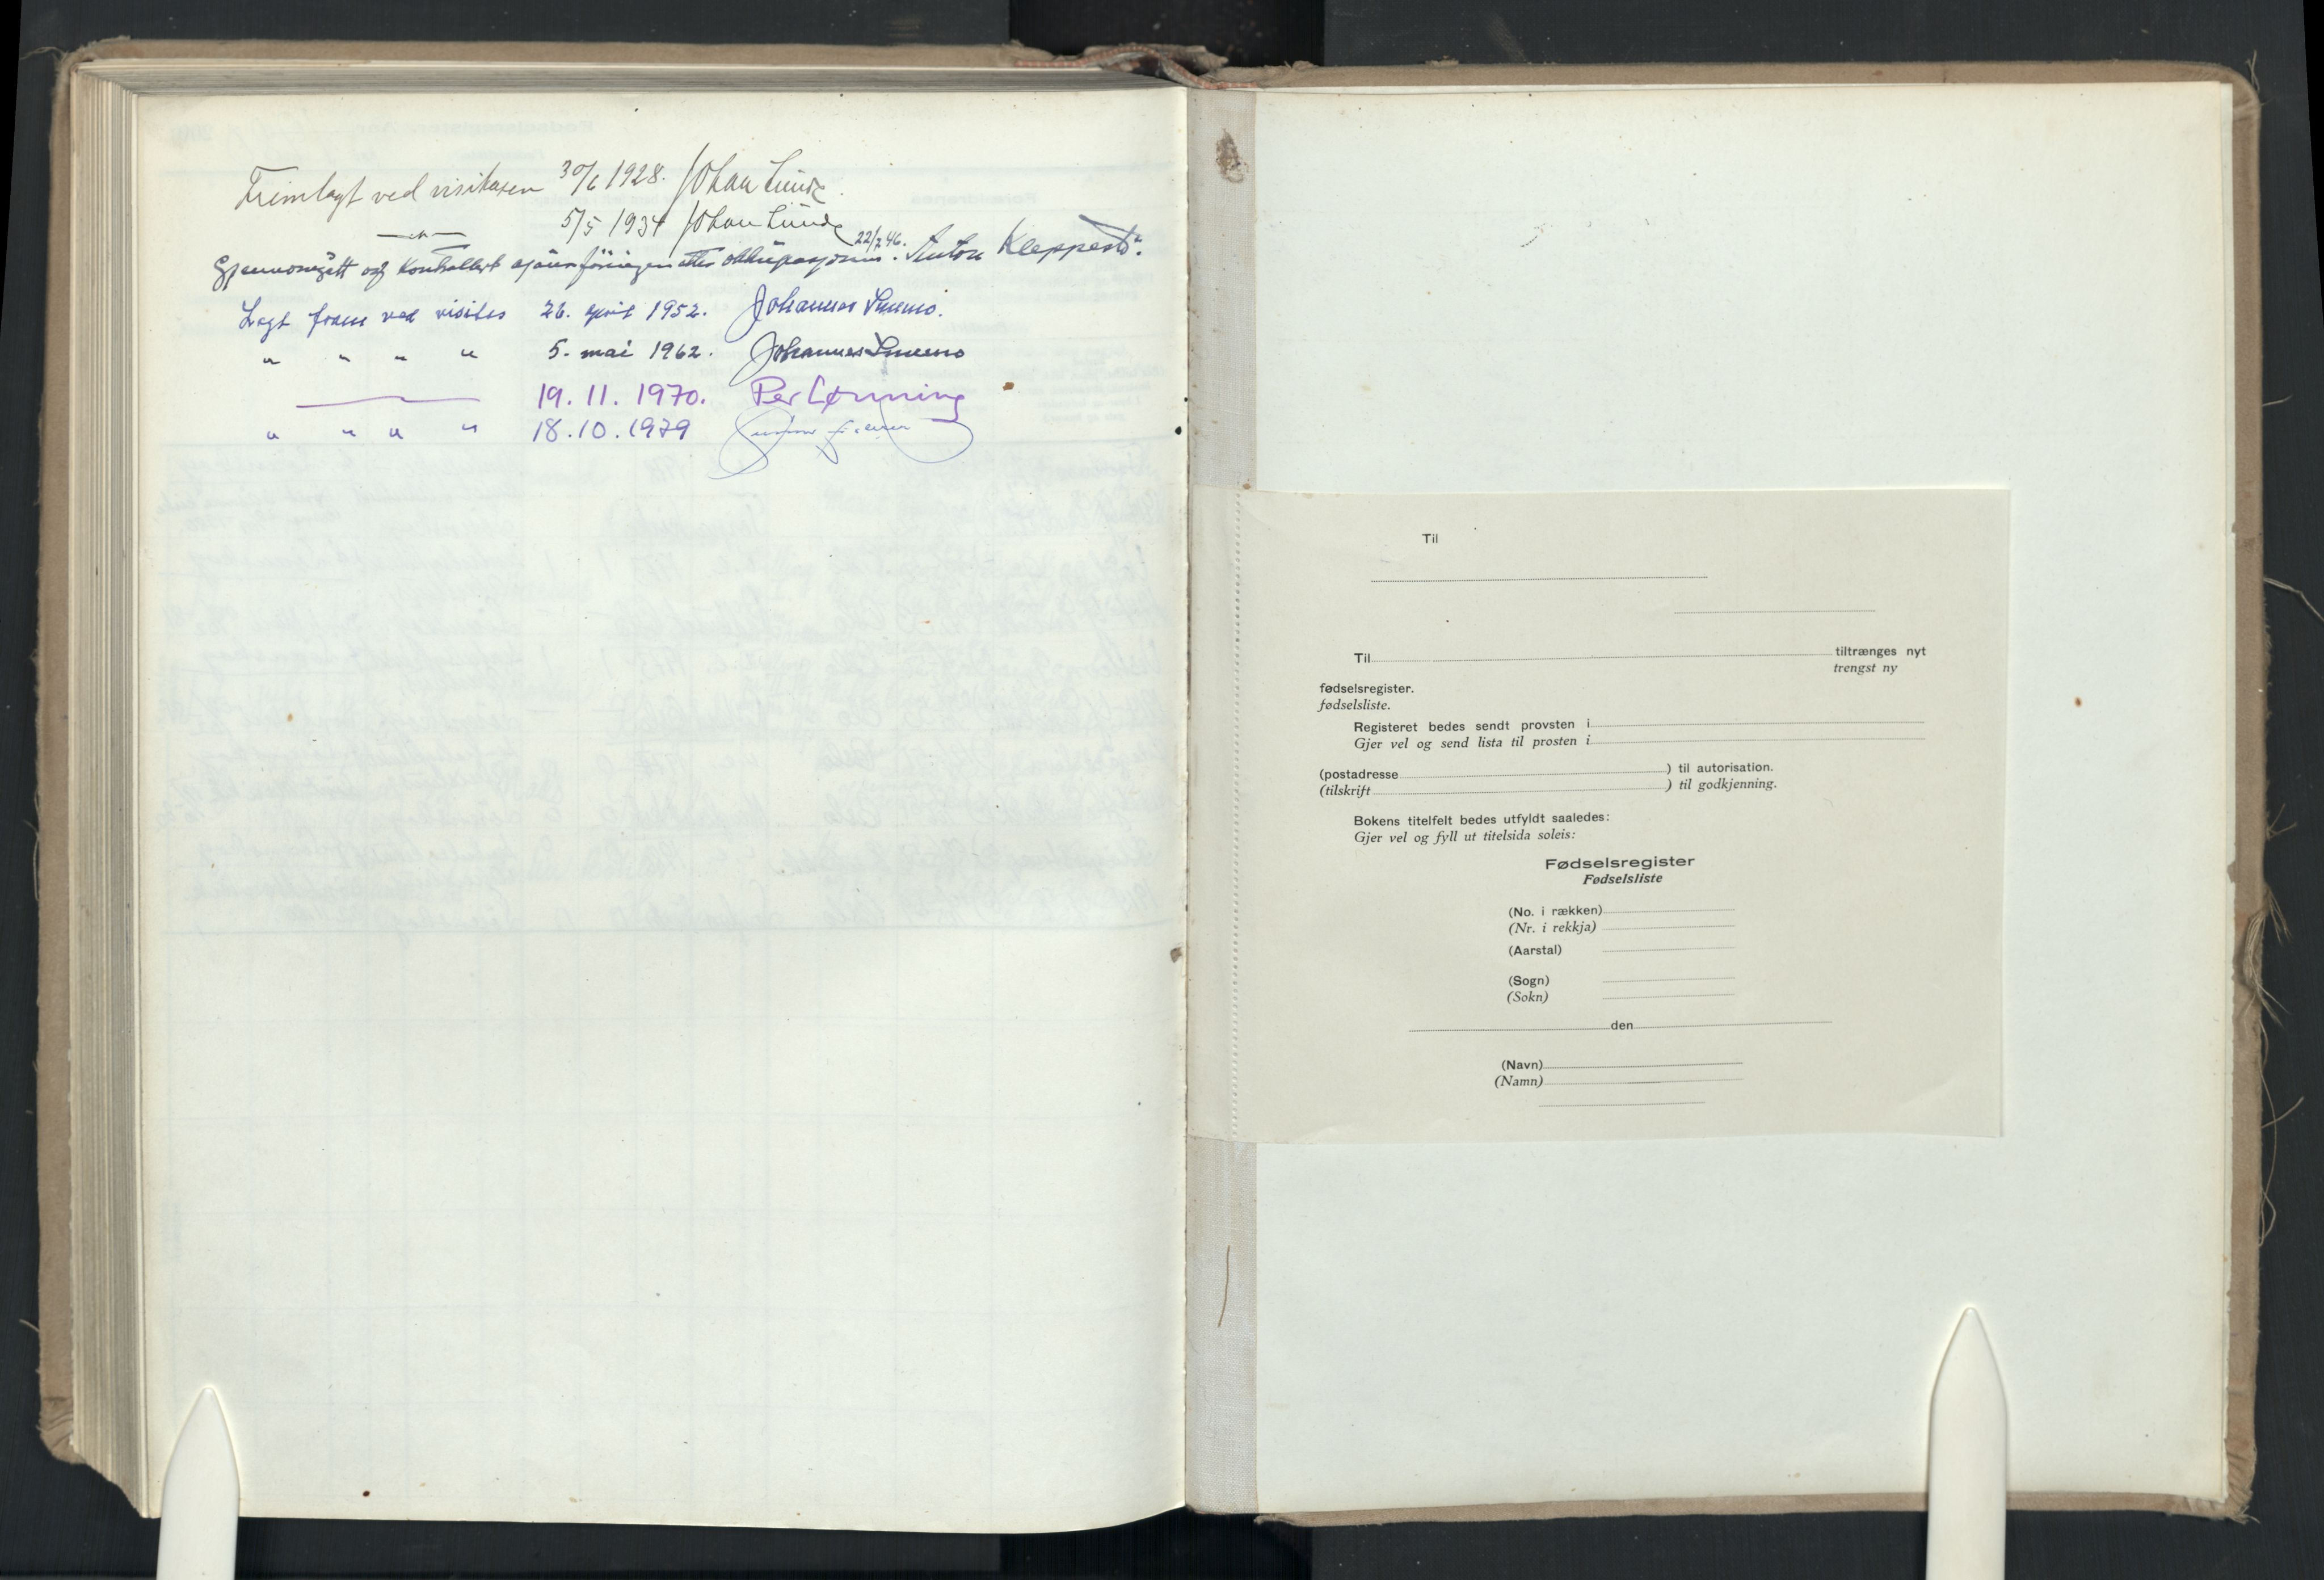 Fremlagt ved visitasen 30/6 1928. Johan Lunde.
—"— 5/5 1934 Johan Lunde
Gjennomgått og kontrollert ajourføringen etter okkupasjonen. 22/2 46. Anton
Lagt fram ved visitas 26. april 1952. Johannes Smemo.
" " " " 5. mai 1962. Johannes Smemo
19. 11. 1970. Per Lønning
" " " " 18.10.1979
Til
Til tiltrænges nyt
trengst ny
fødselsregister.
fødselsliste.
Registeret bedes sendt provsten i
Gjer vel og send lista til prosten i
(postadresse ) til autorisation.
(tilskrift ) til godkjenning.
Bokens titelfelt bedes utfyldt saaledes:
Gjer vel og fyll ut titelsida soleis:
Fødselsregister
Fødselsliste
(No. i rækken)
(Nr. i rekkja)
(Aarstal)
(Sogn)
(Sokn)
den
(Navn)
(Namn)